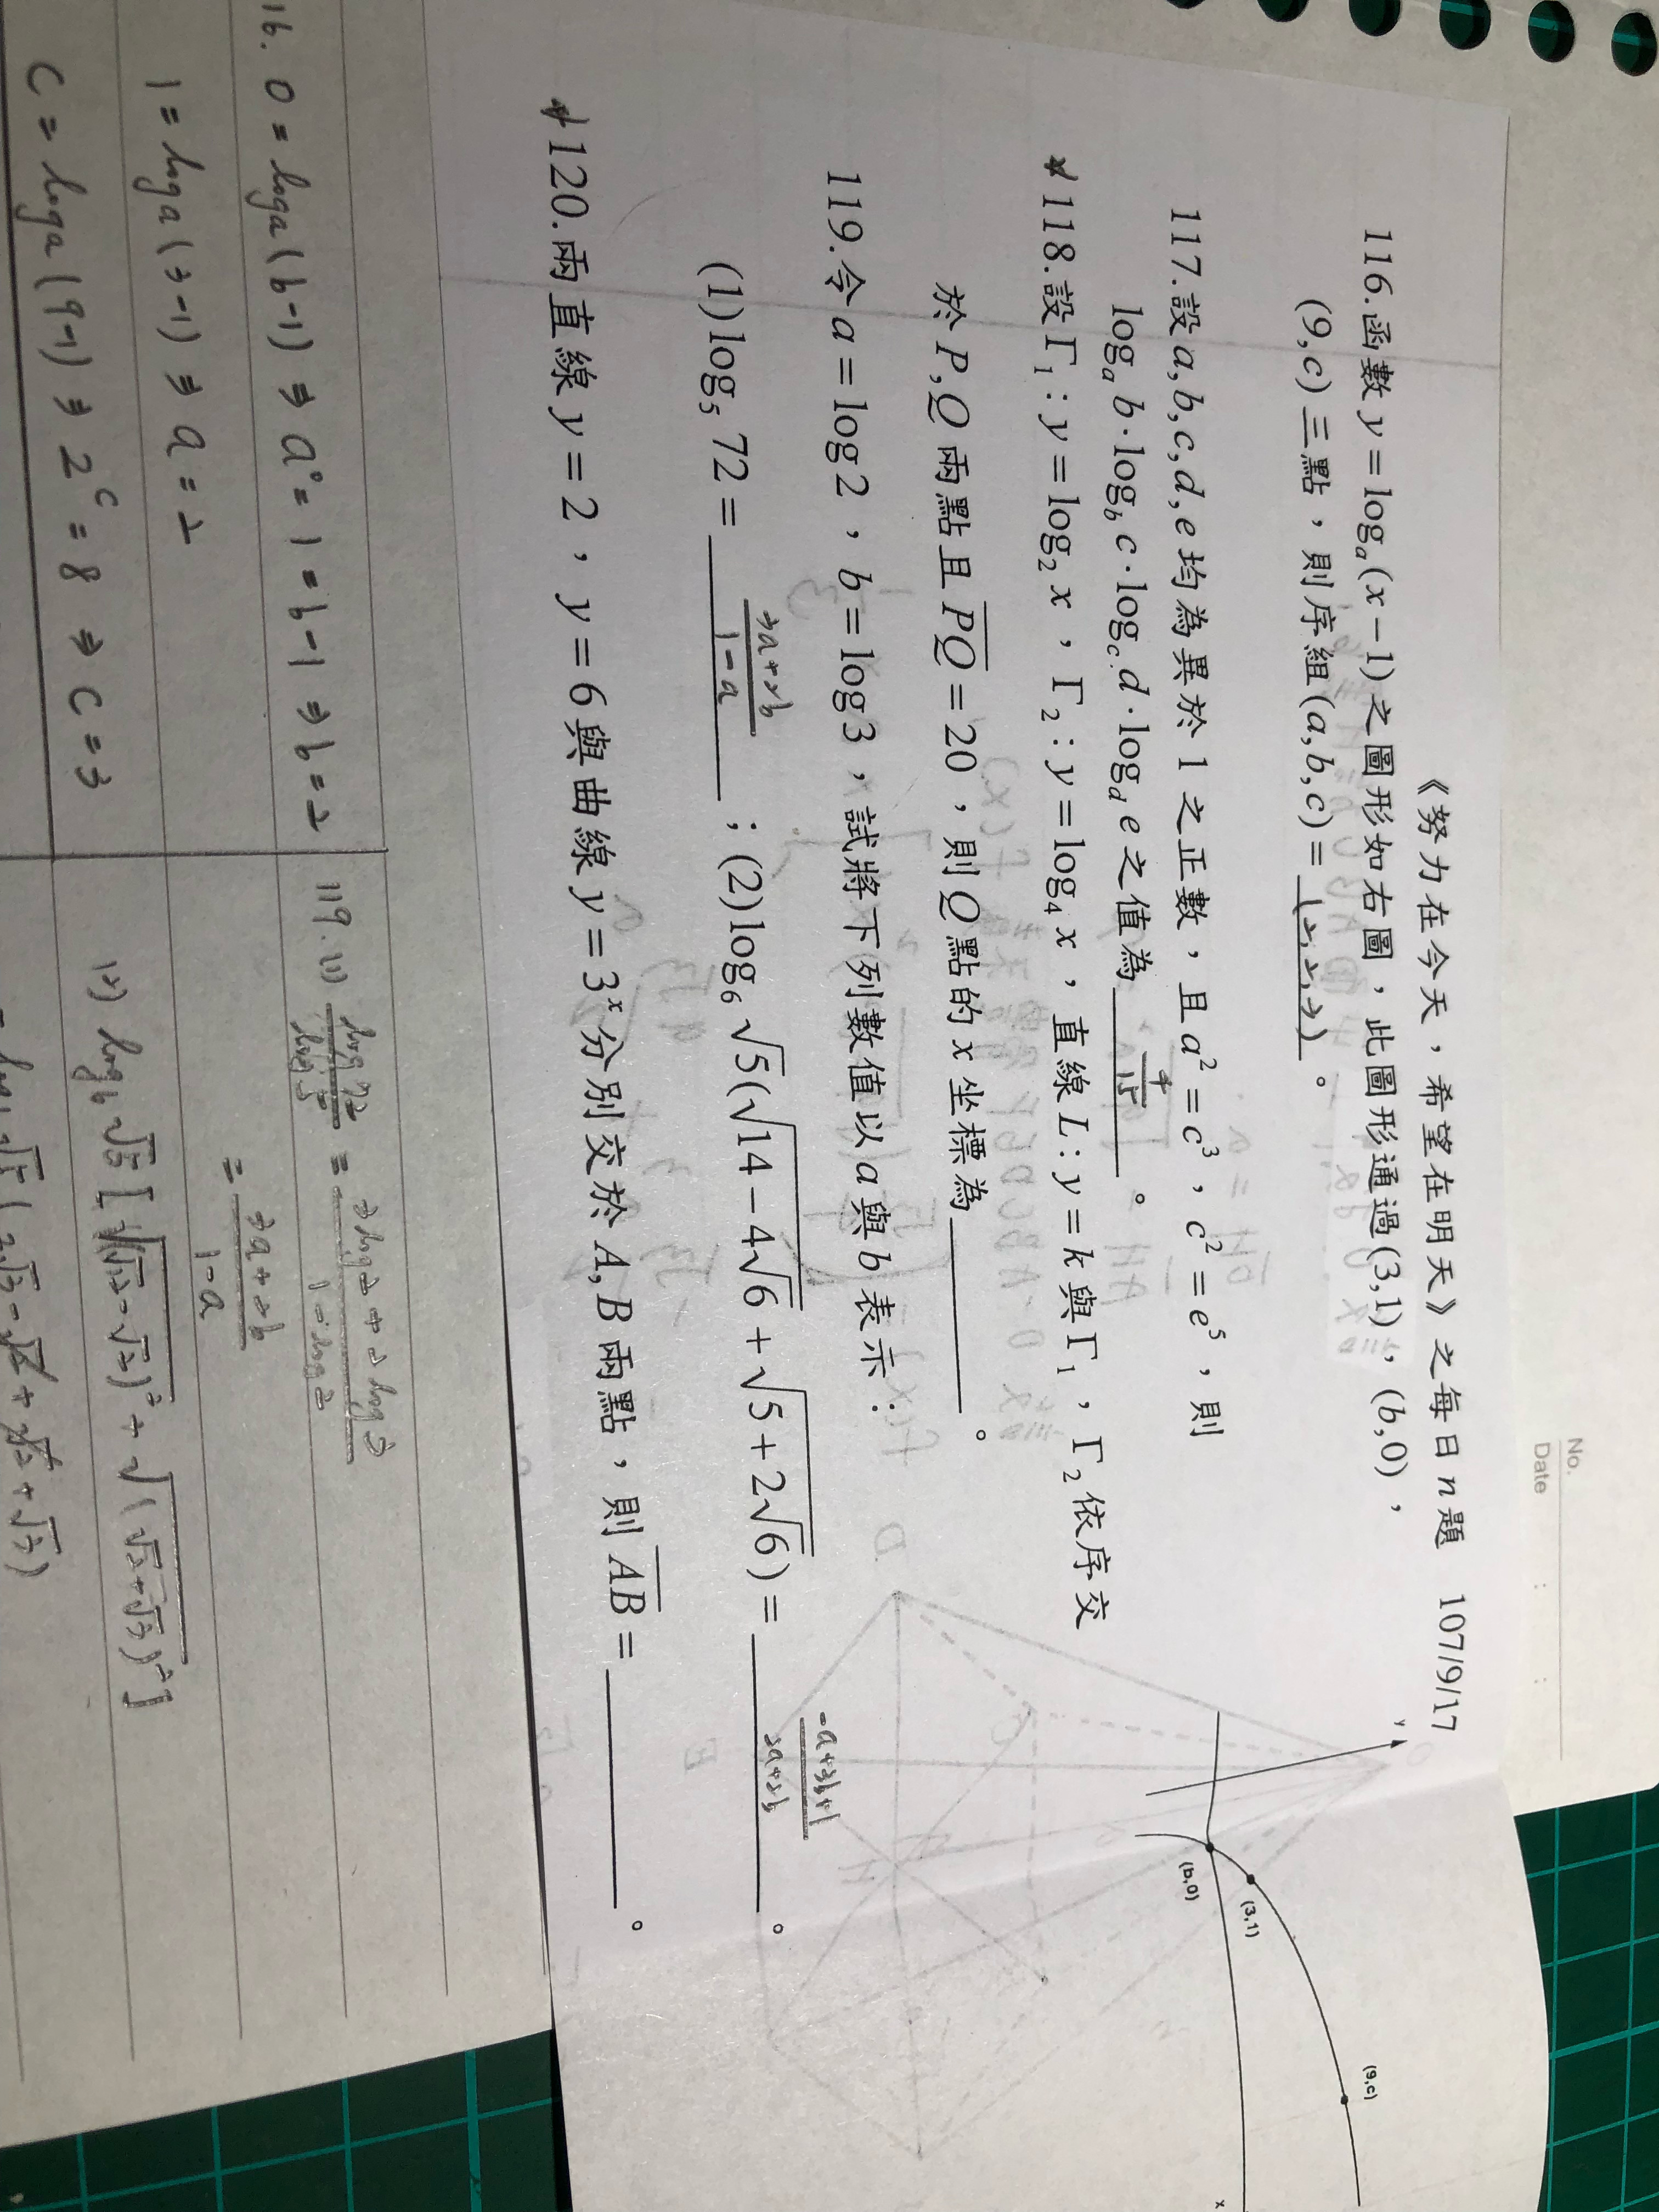 No.
Date : .
《努力在今天，希望在明天》之每日n題 107/9/17
116.函數y=logₐ(x−1)之圖形如右圖，此圖形通過(3,1)，(b,0)，
(9,c)三點，則序組(a,b,c)=(2,2,3)。
y
(b,0)
(3,1)
(9,c)
x
117.設a,b,c,d,e均為異於1之正數，且a²=c³，c²=e⁵，則
logₐ b·log_b c·log_c d·log_d e之值為4/15。
118.設Γ₁:y=log₂x，Γ₂:y=log₄x，直線L:y=k與Γ₁，Γ₂依序交
於P,Q兩點且PQ=20，則Q點的x坐標為______。
119.令a=log2，b=log3，試將下列數值以a與b表示：
(1)log₅72=(3a+2b)/(1-a)；(2)log₆√5(√(14−4√6)+√(5+2√6))=(-a+3b+1)/(2a+2b)。
120.兩直線y=2，y=6與曲線y=3ˣ分別交於A,B兩點，則AB=______。
16. 0=logₐ(b-1) ⇒ a⁰=1=b-1 ⇒ b=2
1=logₐ(3-1) ⇒ a=2
c=logₐ(9-1) ⇒ 2ᶜ=8 ⇒ c=3
119. (1) log72/log5 = (3log2+2log3)/(1-log2)
= (3a+2b)/(1-a)
(2) log₆√5[√(√12-√2)²+√(√2+√3)²]